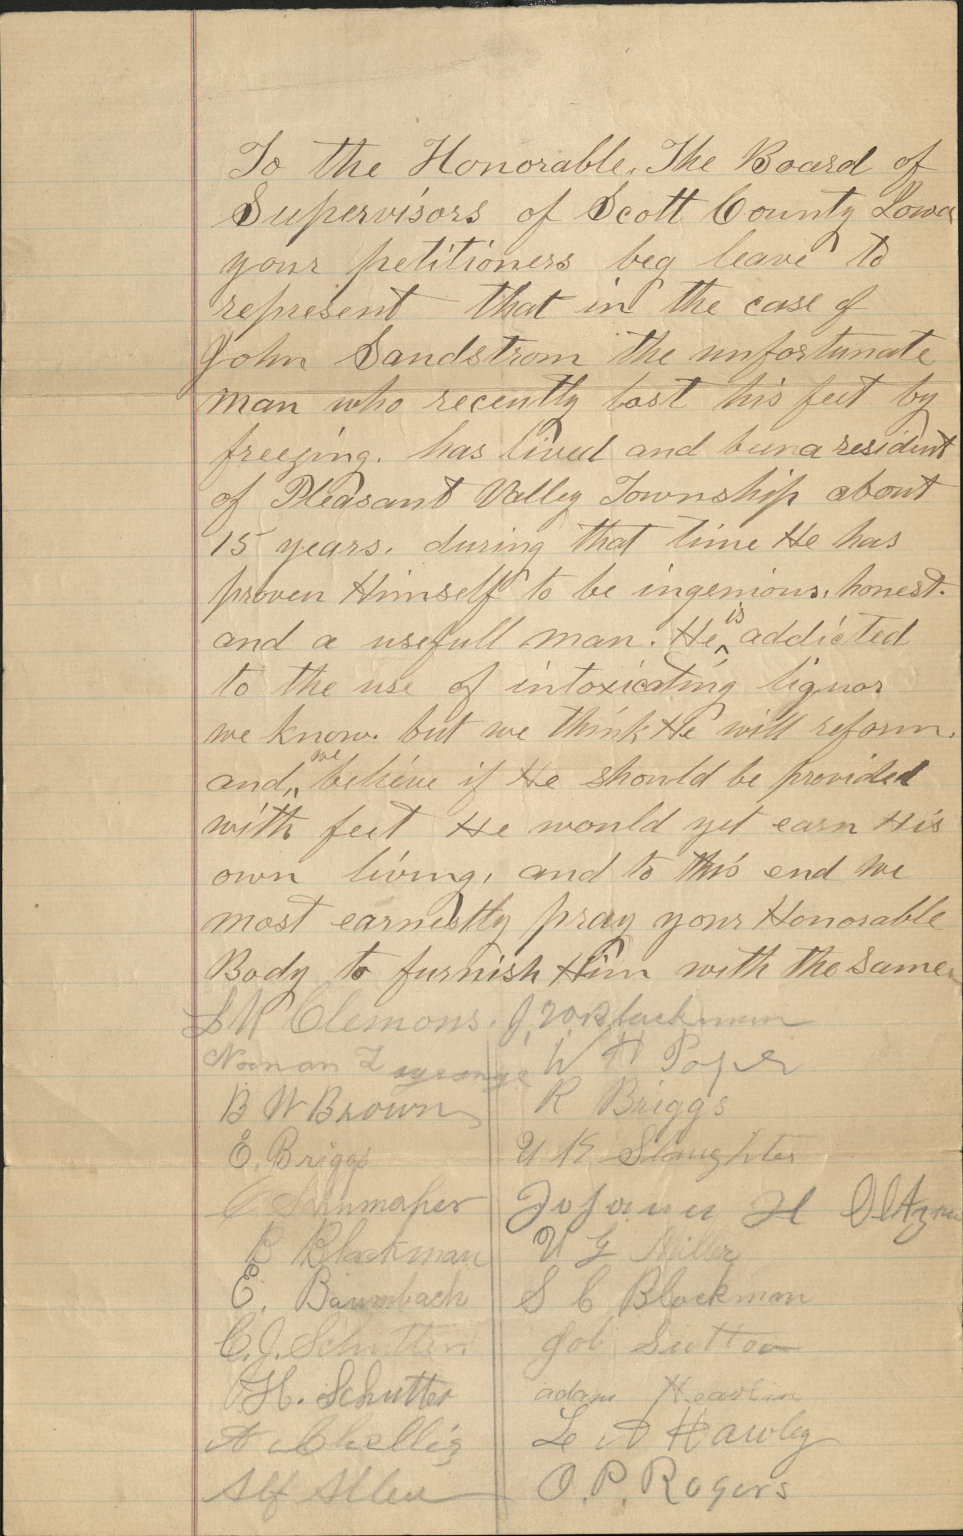 To the Honorable, The Board of
Supervisors of Scott County Iowa
your petitioners beg leave to
represent that in the case of
John Sandstrom the unfortunate
man who recently lost his feet by
freezing. has lived and been a resident
of Pleasant Valley Township about
15 years. during that time He has
proven Himself to be ingenious, honest.
and a usefull man. He is addicted
to the use of intoxicating liquor
we know. but we think He will reform.
and, we believe if He should be provided
with feet He would yet earn His
own living, and to this end we
most earnestly pray your Honorable
Body to furnish Him with the same
S K Clemons. J W Blackman
Norman W H Pope
B W Brown R Briggs
E. Briggs U K Slaughter
C Schumaker H
B Blackman U G Miller
E. Baumbach S C Blackman
C. J. Schutter. Job Sutton
H. Schutter adam
A L A Hawley
Alf Allen O. P. Rogers